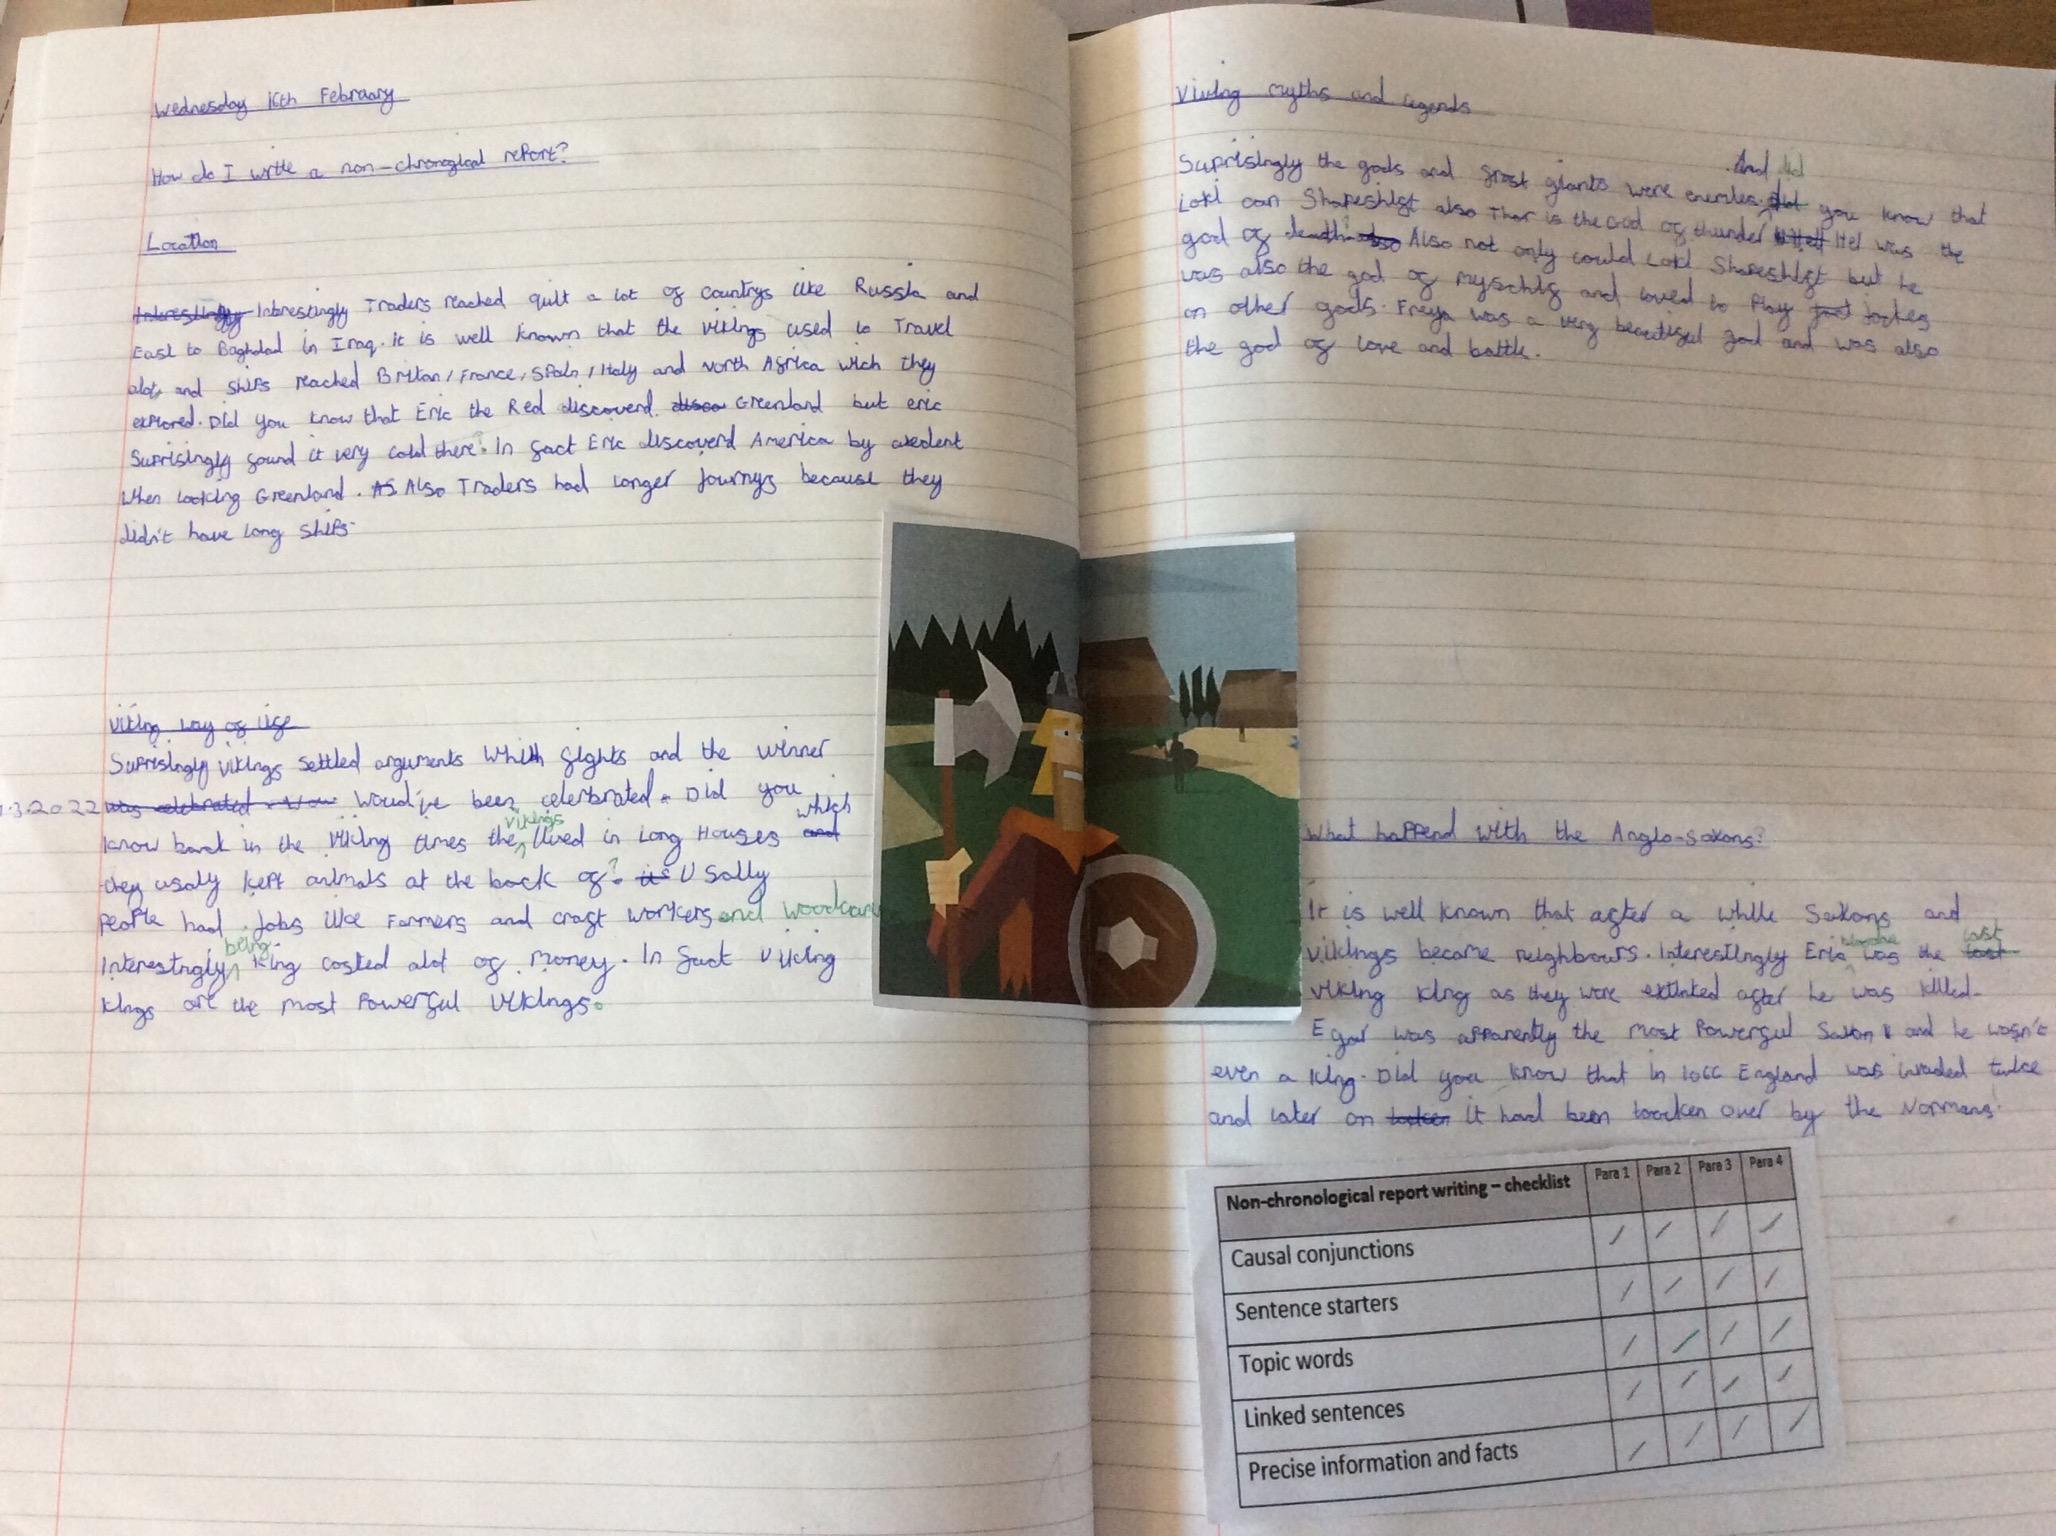 Wednesday 16th February
How do I write a non-chronoglical report?
Location
Interestingly Intrestingly Traders reached quit a lot of countrys like Russia and
East to Baghdad in Iraq. it is well known that the vikings used to Travel
alot, and ships reached Britan, France, Spain, Italy and North Africa wich they
explored. Did you know that Eric the Red discoverd disco Greenland but eric
Suprisingly found it very cold there? In fact Eric discoverd America by axedent
when looking Greenland. AS Also Traders had longer journys because they
didn't have long ships.
Viking way of life
Suprisingly vikings settled arguments whith fights and the winner
.3.2022 was celebrated. Now Would've been celerbrated. Did you
know back in the viking times the vikings lived in Long Houses and which
they usaly kept animals at the back of? it's Usally
people had jobs like Farmers and craft workers and woodcarv
Interestingly being king costed alot of money. In fact viking
kings are the most powerful vikings.
Viving myths and legends
Suprisingly the gods and frost giants were enemies. did And did you know that
Loki can Shapeshift also Thor is the God of thunder Hel was the
god of death? also Also not only could Loki Shapeshift but he
was also the god of myschif and loved to play jockes
on other gods. Freya was a very beautiful god and was also
the god of love and battle.
What happend with the Anglo-saxons?
It is well known that after a while Saxons and
vikings became neighbours. Interestingly Eric was the last last
viking king as they were extinked after he was killed.
Egar was apparently the most powerful Saxon and he wasn't
even a king. Did you know that in 1066 England was invaded twice
and later on it had been toocken over by the Normans.
Non-chronological report writing – checklist Para 1 Para 2 Para 3 Para 4
Causal conjunctions / / / /
Sentence starters / / / /
Topic words / / / /
Linked sentences / / / /
Precise information and facts / / / /